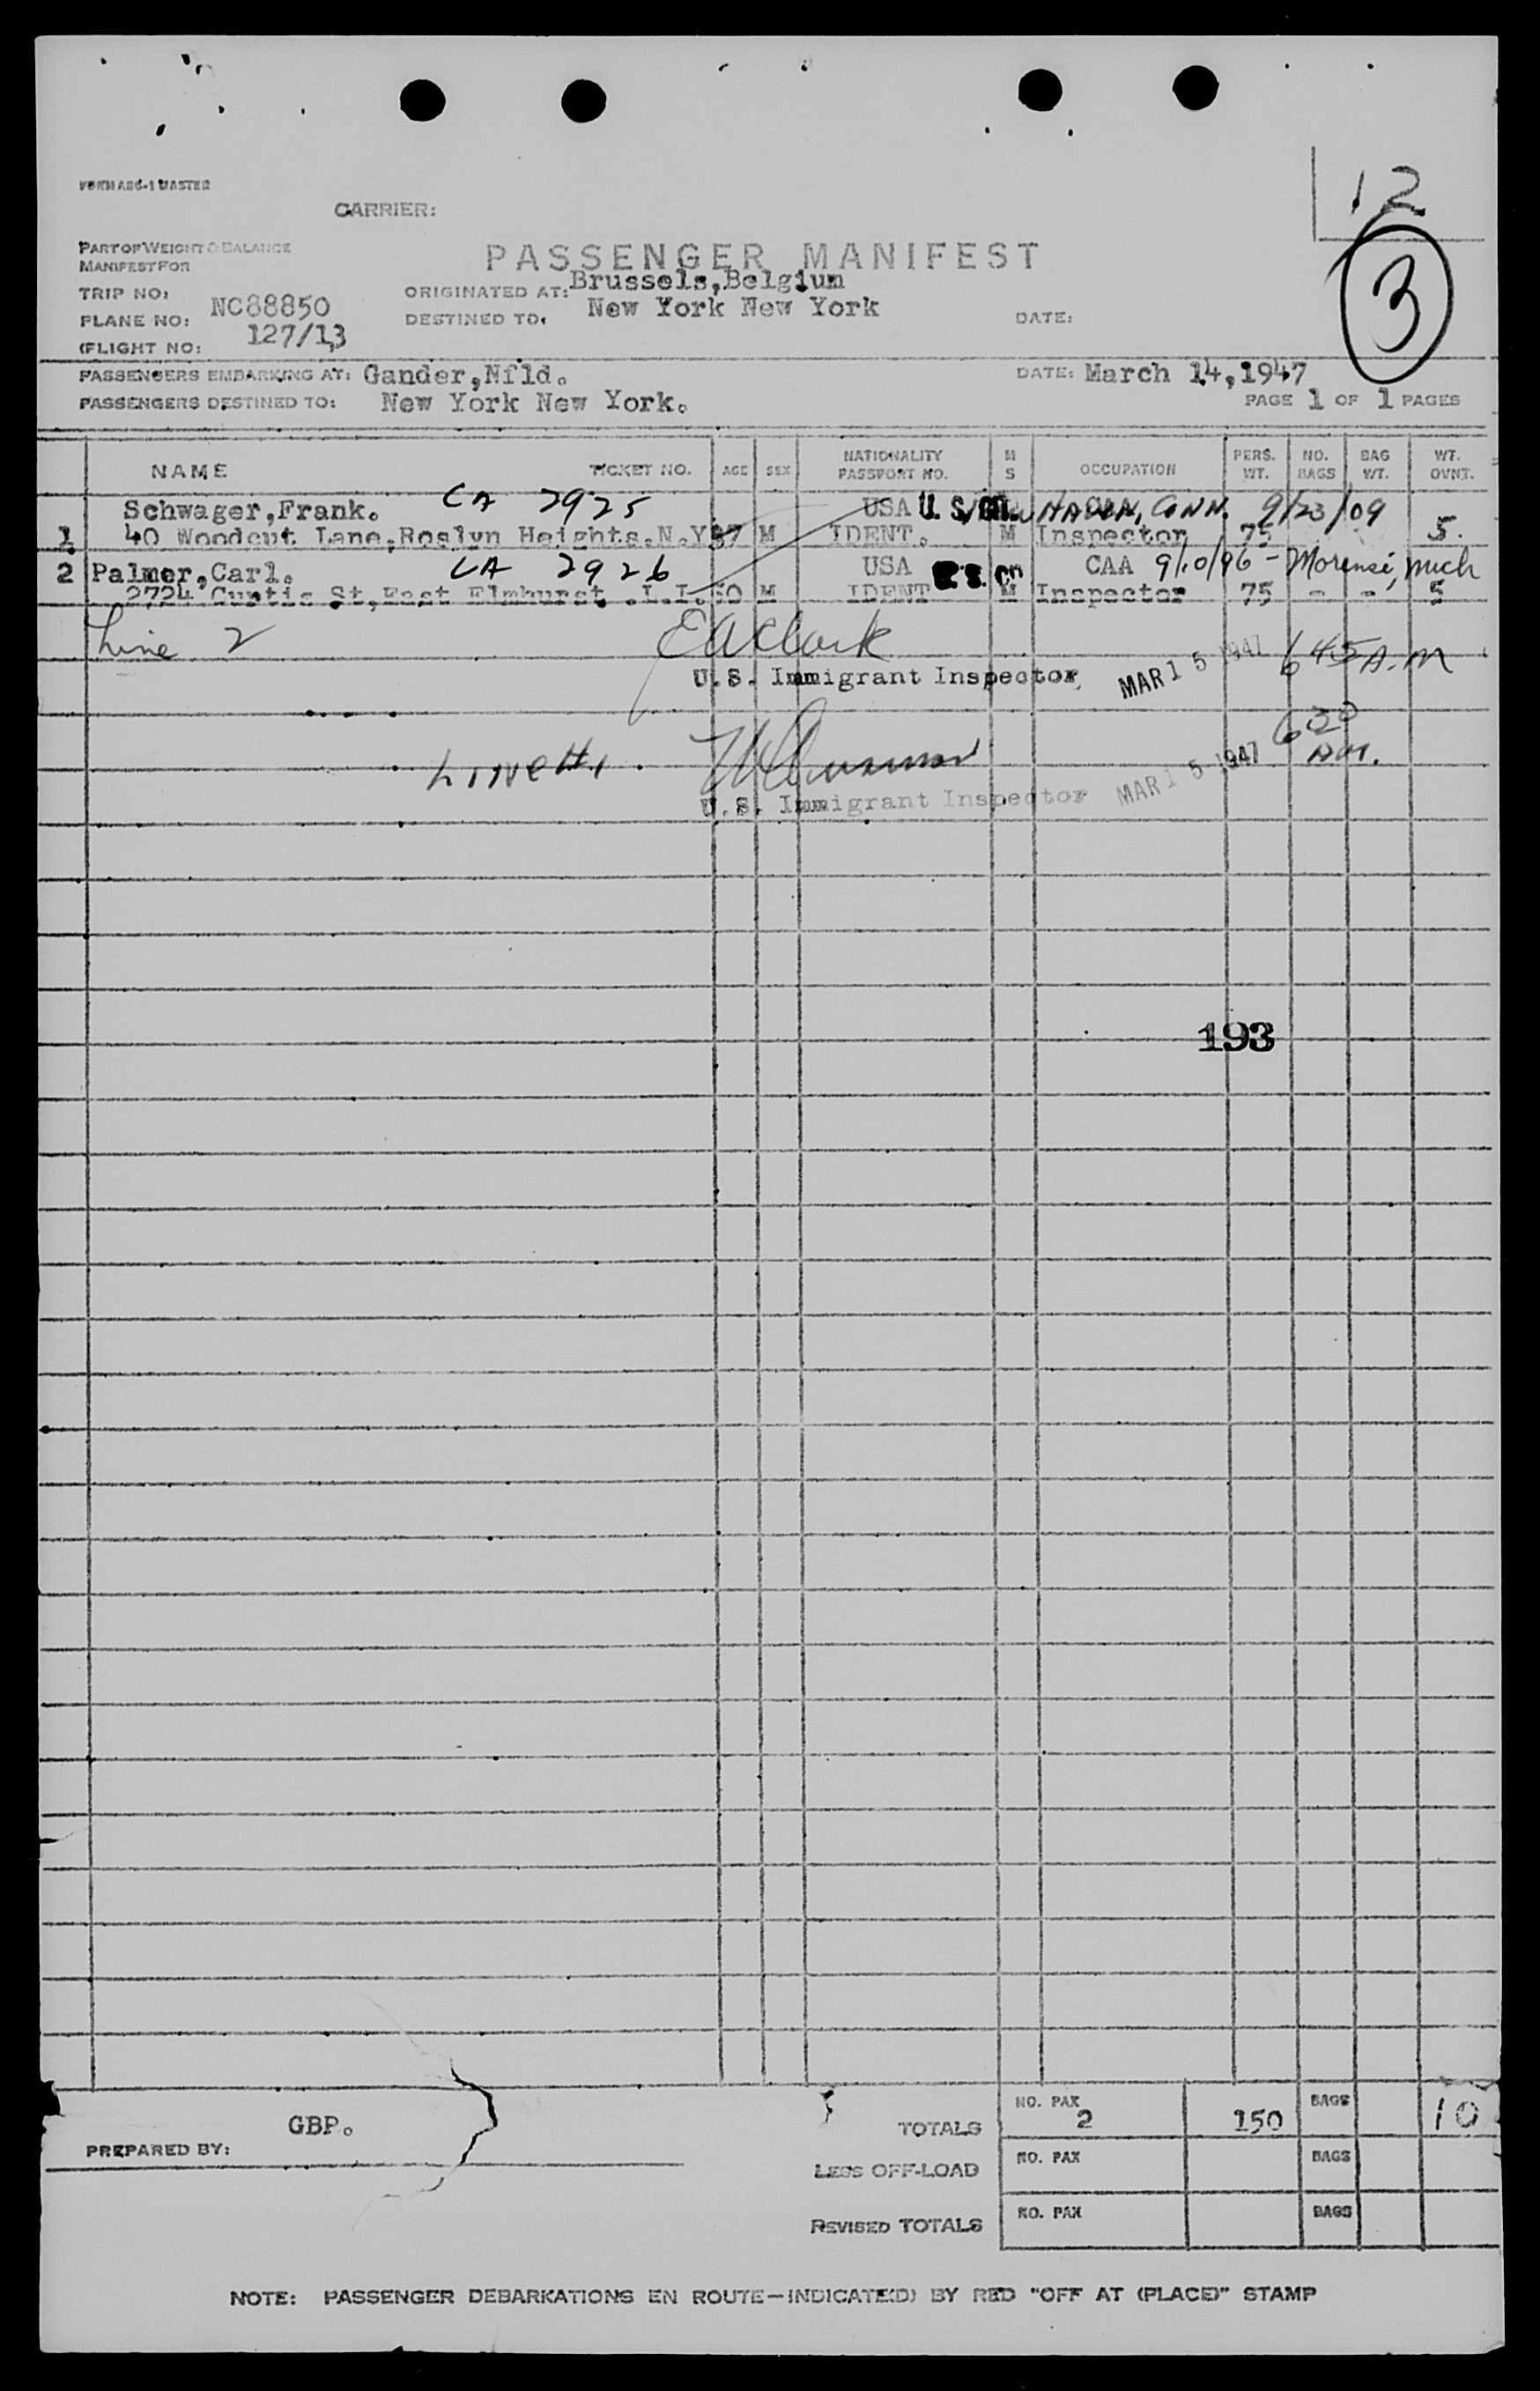 FORM ABC-1 MASTER
12
CARRIER:
PART OF WEIGHT & BALANCE
MANIFEST FOR
PASSENGER MANIFEST
3
TRIP NO:
ORIGINATED AT: Brussels,Belgium
PLANE NO: NC88850
DESTINED TO: New York New York
DATE:
(FLIGHT NO: 127/13
PASSENGERS EMBARKING AT: Gander,Nfld.
DATE: March 14,1947
PASSENGERS DESTINED TO: New York New York.
PAGE 1 OF 1 PAGES
NAME TICKET NO. AGE SEX NATIONALITY PASSPORT NO. M S OCCUPATION PERS. WT. NO. BAGS BAG WT. WT. OVNT.
Schwager,Frank. CA 2925 USA U.S. CIT. HAVEN, CONN. 9/23/09
1 40 Woodcut Lane,Roslyn Heights.N.Y 37 M IDENT. M Inspector 75 5.
2 Palmer,Carl. CA 2926 USA CAA 9/10/96 - Morensi, Mich
2724 Curtis St,East Elmhurst .L.I. 50 M IDENT M Inspector 75 - - 5
Line 2 E A Clark
U.S. Immigrant Inspector MAR 15 1947 645 A.M
Line #1 630 AM.
U.S. Immigrant Inspector MAR 15 1947
193
GBP.
PREPARED BY:
TOTALS NO. PAX 2 150 BAGS 10
LESS OFF-LOAD NO. PAX BAGS
REVISED TOTALS NO. PAX BAGS
NOTE: PASSENGER DEBARKATIONS EN ROUTE—INDICATE(D) BY RED "OFF AT (PLACE)" STAMP